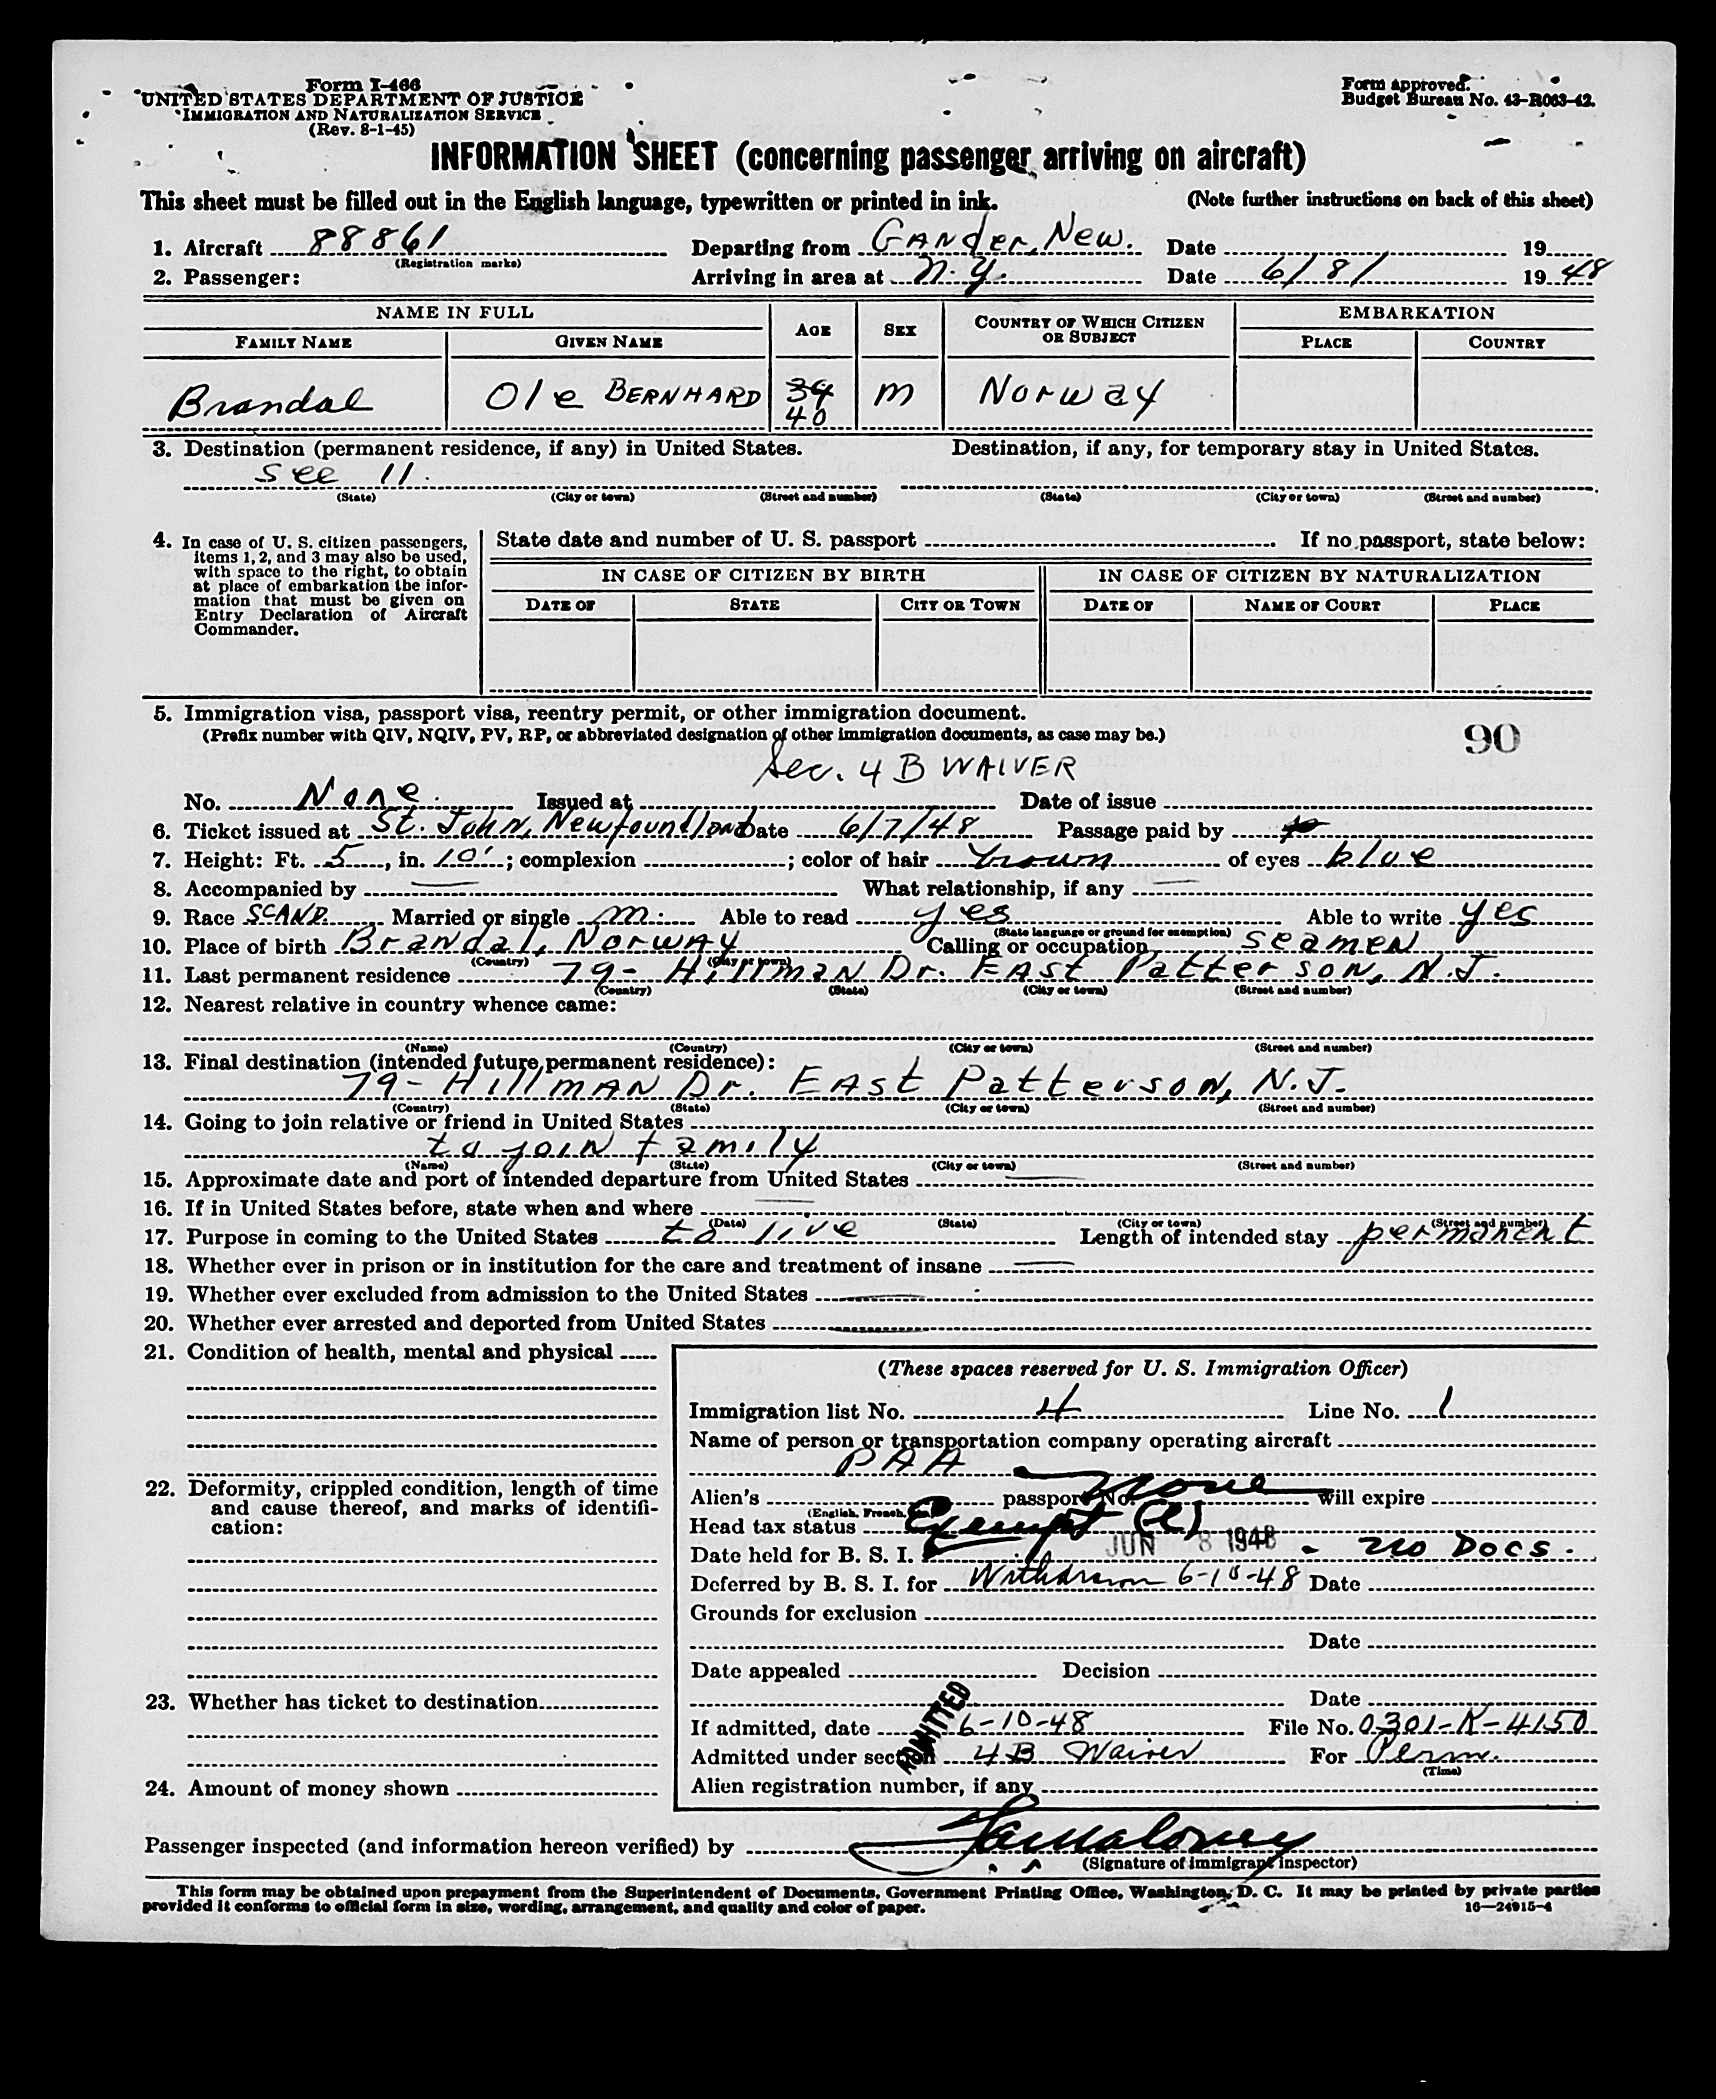 Form I-466
UNITED STATES DEPARTMENT OF JUSTICE
IMMIGRATION AND NATURALIZATION SERVICE
(Rev. 8-1-45)
Form approved.
Budget Bureau No. 43-R063-42.
INFORMATION SHEET (concerning passenger arriving on aircraft)
This sheet must be filled out in the English language, typewritten or printed in ink. (Note further instructions on back of this sheet)
1. Aircraft 88861 Departing from Gander, New. Date 19
(Registration marks)
2. Passenger: Arriving in area at N.Y. Date 6/8/ 1948
NAME IN FULL AGE SEX COUNTRY OF WHICH CITIZEN OR SUBJECT EMBARKATION
FAMILY NAME GIVEN NAME PLACE COUNTRY
Brandal Ole BERNHARD 39 M Norway
40
3. Destination (permanent residence, if any) in United States. Destination, if any, for temporary stay in United States.
See 11.
(State) (City or town) (Street and number) (State) (City or town) (Street and number)
4. In case of U. S. citizen passengers,
items 1, 2, and 3 may also be used,
with space to the right, to obtain
at place of embarkation the infor-
mation that must be given on
Entry Declaration of Aircraft
Commander.
State date and number of U. S. passport If no passport, state below:
IN CASE OF CITIZEN BY BIRTH IN CASE OF CITIZEN BY NATURALIZATION
DATE OF STATE CITY OR TOWN DATE OF NAME OF COURT PLACE
5. Immigration visa, passport visa, reentry permit, or other immigration document.
(Prefix number with QIV, NQIV, PV, RP, or abbreviated designation of other immigration documents, as case may be.) 90
Sec. 4 B WAIVER
No. None Issued at Date of issue
6. Ticket issued at St. John, Newfoundland Date 6/7/48 Passage paid by
7. Height: Ft. 5, in. 10'; complexion ; color of hair brown of eyes blue
8. Accompanied by — What relationship, if any —
9. Race SCAND. Married or single m. Able to read yes Able to write yes
(State language or ground for exemption)
10. Place of birth Brandal, Norway Calling or occupation seamen
(Country) (City or town)
11. Last permanent residence 79- Hillman Dr. East Patterson, N.J.
(Country) (State) (City or town) (Street and number)
12. Nearest relative in country whence came:
(Name) (Country) (City or town) (Street and number)
13. Final destination (intended future permanent residence):
79- Hillman Dr. East Patterson, N.J.
(Country) (State) (City or town) (Street and number)
14. Going to join relative or friend in United States
to join family
(Name) (State) (City or town) (Street and number)
15. Approximate date and port of intended departure from United States —
16. If in United States before, state when and where —
(Date) (State) (City or town) (Street and number)
17. Purpose in coming to the United States to live Length of intended stay permanent
18. Whether ever in prison or in institution for the care and treatment of insane —
19. Whether ever excluded from admission to the United States —
20. Whether ever arrested and deported from United States —
21. Condition of health, mental and physical
22. Deformity, crippled condition, length of time
and cause thereof, and marks of identifi-
cation:
23. Whether has ticket to destination
24. Amount of money shown
(These spaces reserved for U. S. Immigration Officer)
Immigration list No. 4 Line No. 1
Name of person or transportation company operating aircraft
PAA
Alien's passport No. None will expire
(English, French,
Head tax status Exempt
Date held for B. S. I. JUN 8 1948 - no Docs.
Deferred by B. S. I. for Withdrawn 6-10-48 Date
Grounds for exclusion
Date
Date appealed Decision
Date
If admitted, date 6-10-48 File No. 0301-K-4150
ADMITTED
Admitted under section 4B Waiver For Perm.
(Time)
Alien registration number, if any
Passenger inspected (and information hereon verified) by
(Signature of immigrant inspector)
This form may be obtained upon prepayment from the Superintendent of Documents, Government Printing Office, Washington, D. C. It may be printed by private parties
provided it conforms to official form in size, wording, arrangement, and quality and color of paper. 16—24915-4